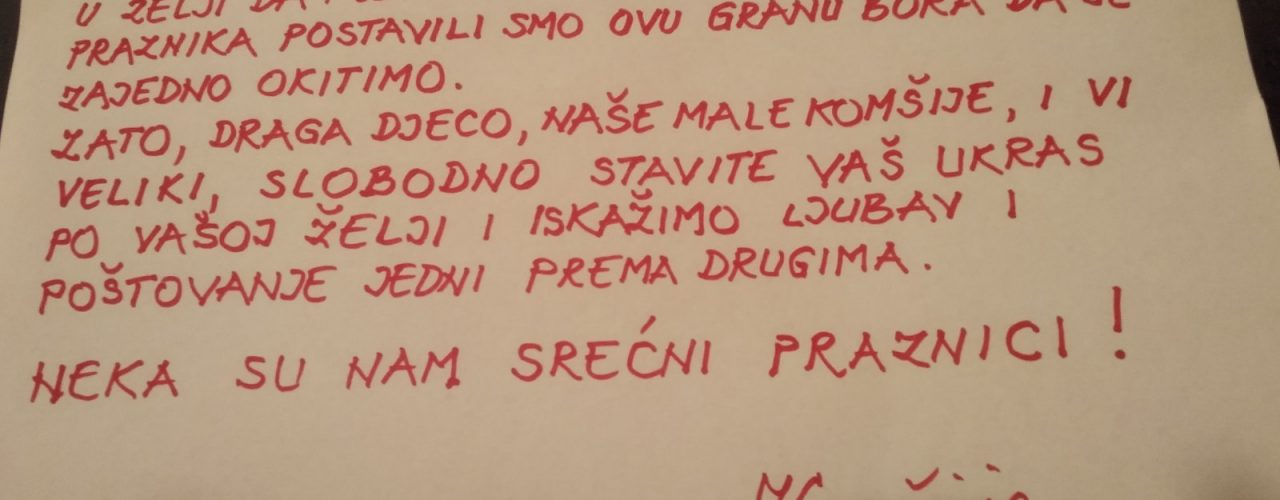 U ŽELJI DA
PRAZNIKA POSTAVILI SMO OVU GRANU BORA DA JE
ZAJEDNO OKITIMO.
ZATO, DRAGA DJECO, NAŠE MALE KOMŠIJE, I VI
VELIKI, SLOBODNO STAVITE VAŠ UKRAS
PO VAŠOJ ŽELJI I ISKAŽIMO LJUBAV I
POŠTOVANJE JEDNI PREMA DRUGIMA.
NEKA SU NAM SREĆNI PRAZNICI!